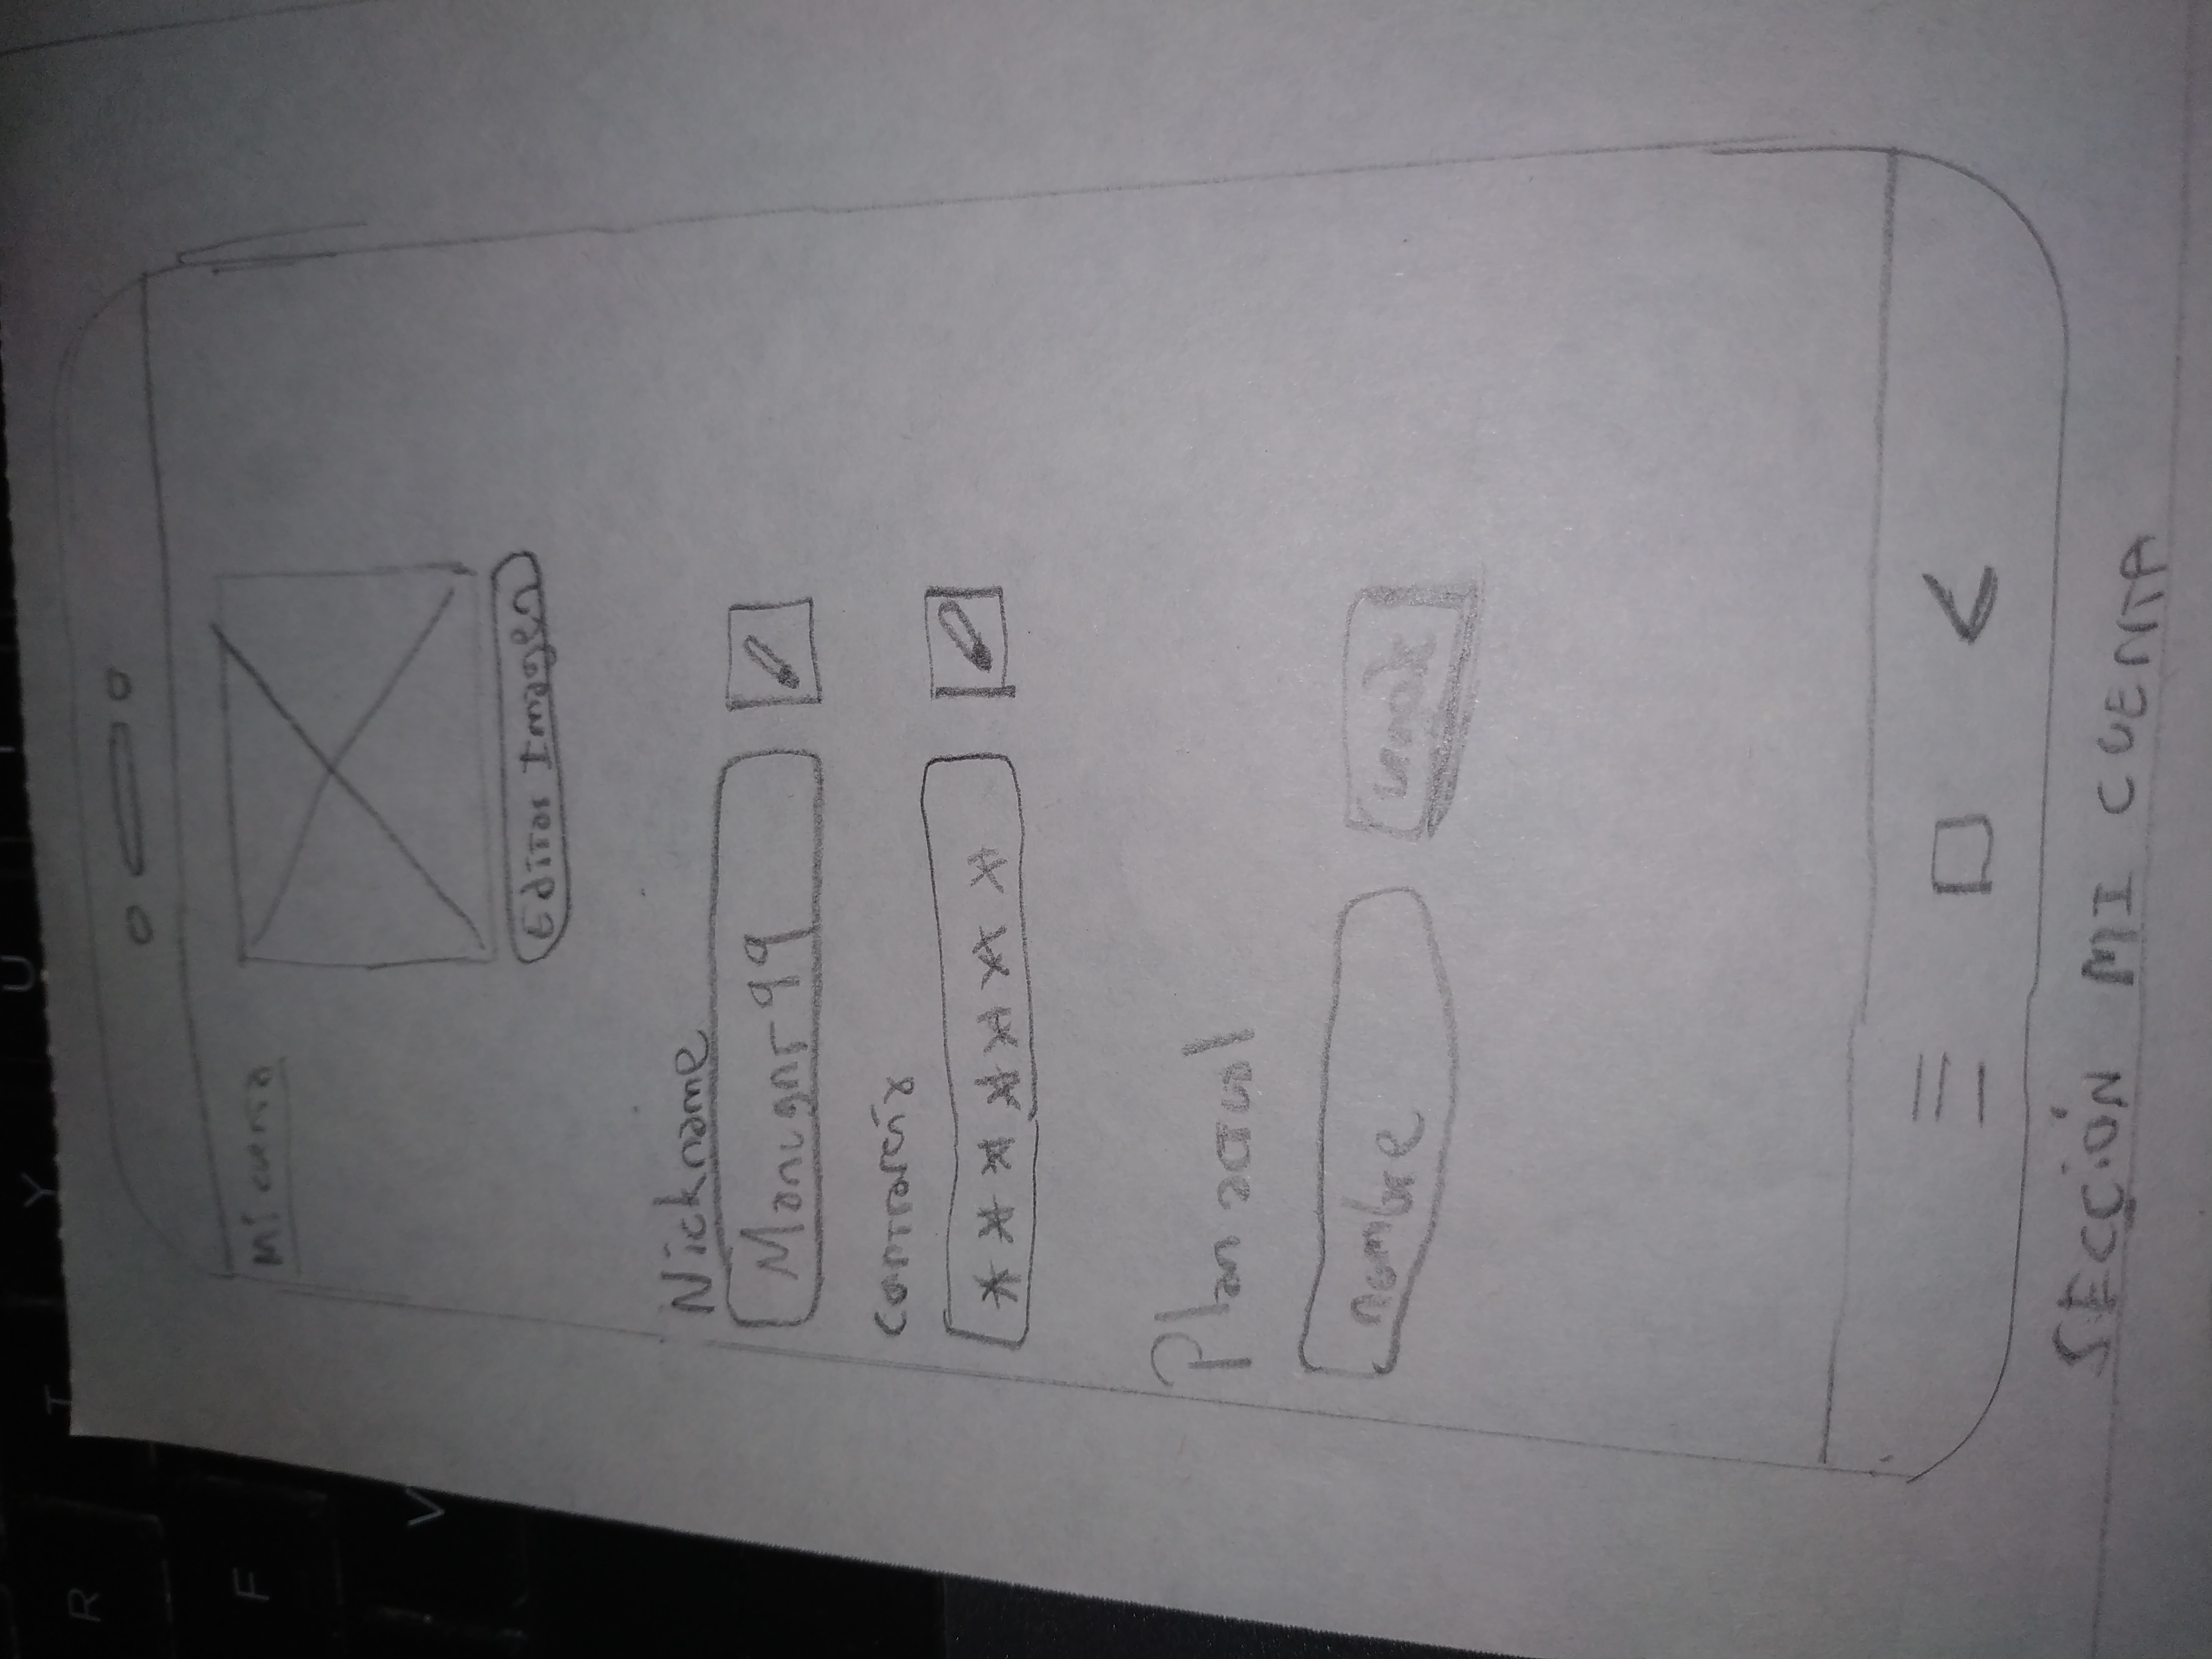 R T Y U
F
V
Mi cuenta
Editar Imagen
Nickname
contraseña
*******
Plan actual
nombre
SECCIÓN MI CUENTA